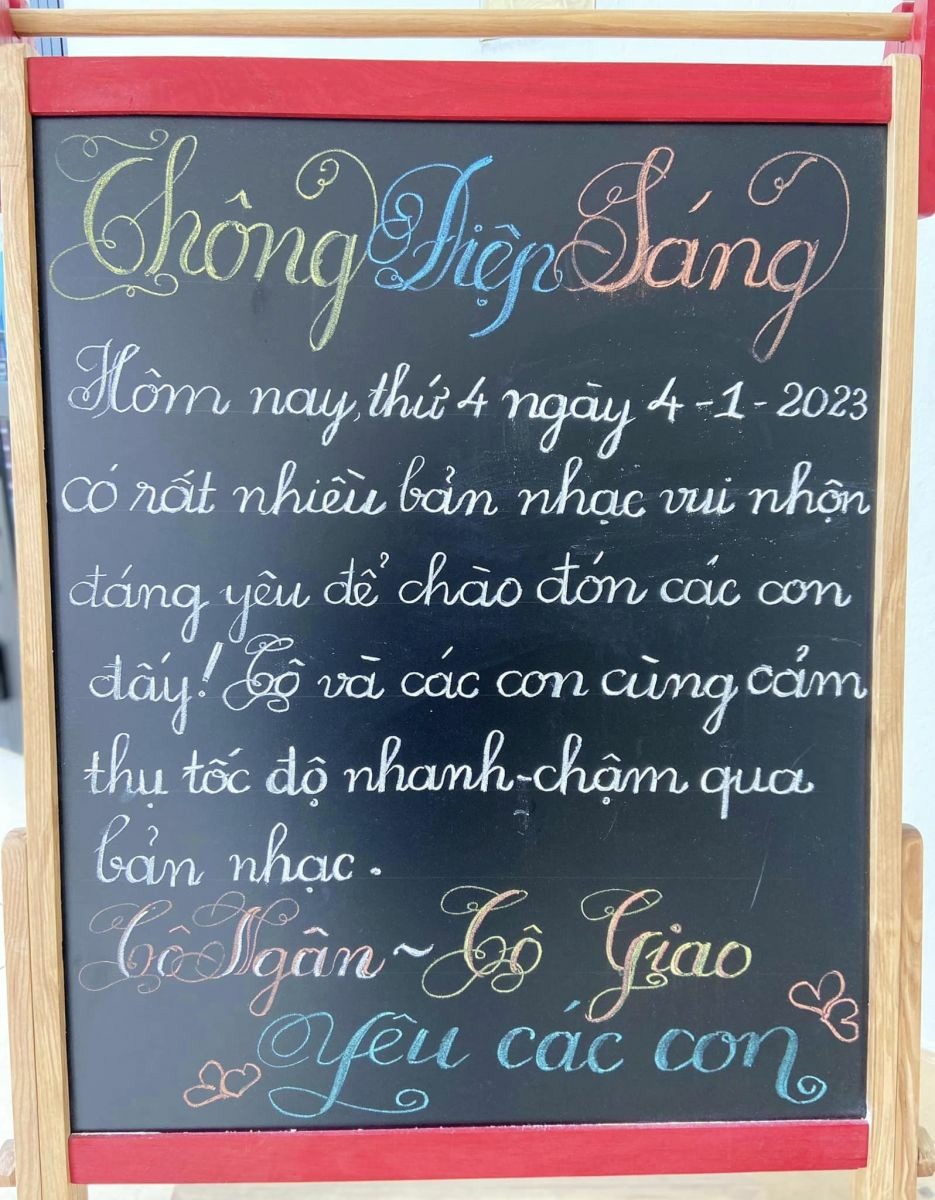 Thông Điệp Sáng
Hôm nay, thứ 4 ngày 4-1-2023
có rất nhiều bản nhạc vui nhộn
đáng yêu để chào đón các con
đấy! Cô và các con cùng cảm
thụ tốc độ nhanh-chậm qua
bản nhạc.
Cô Ngân ~ Cô Giao
Yêu các con